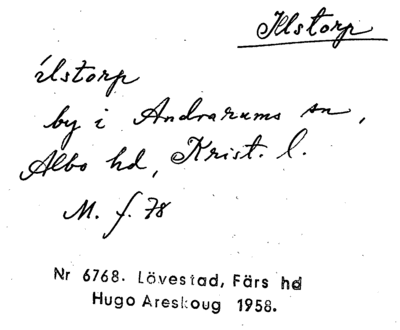 Ilstorp
ílstorp
by i Andrarums sn,
Albo hd, Krist. l.
M. f. 78
Nr 6768. Lövestad, Färs hd
Hugo Areskoug 1958.